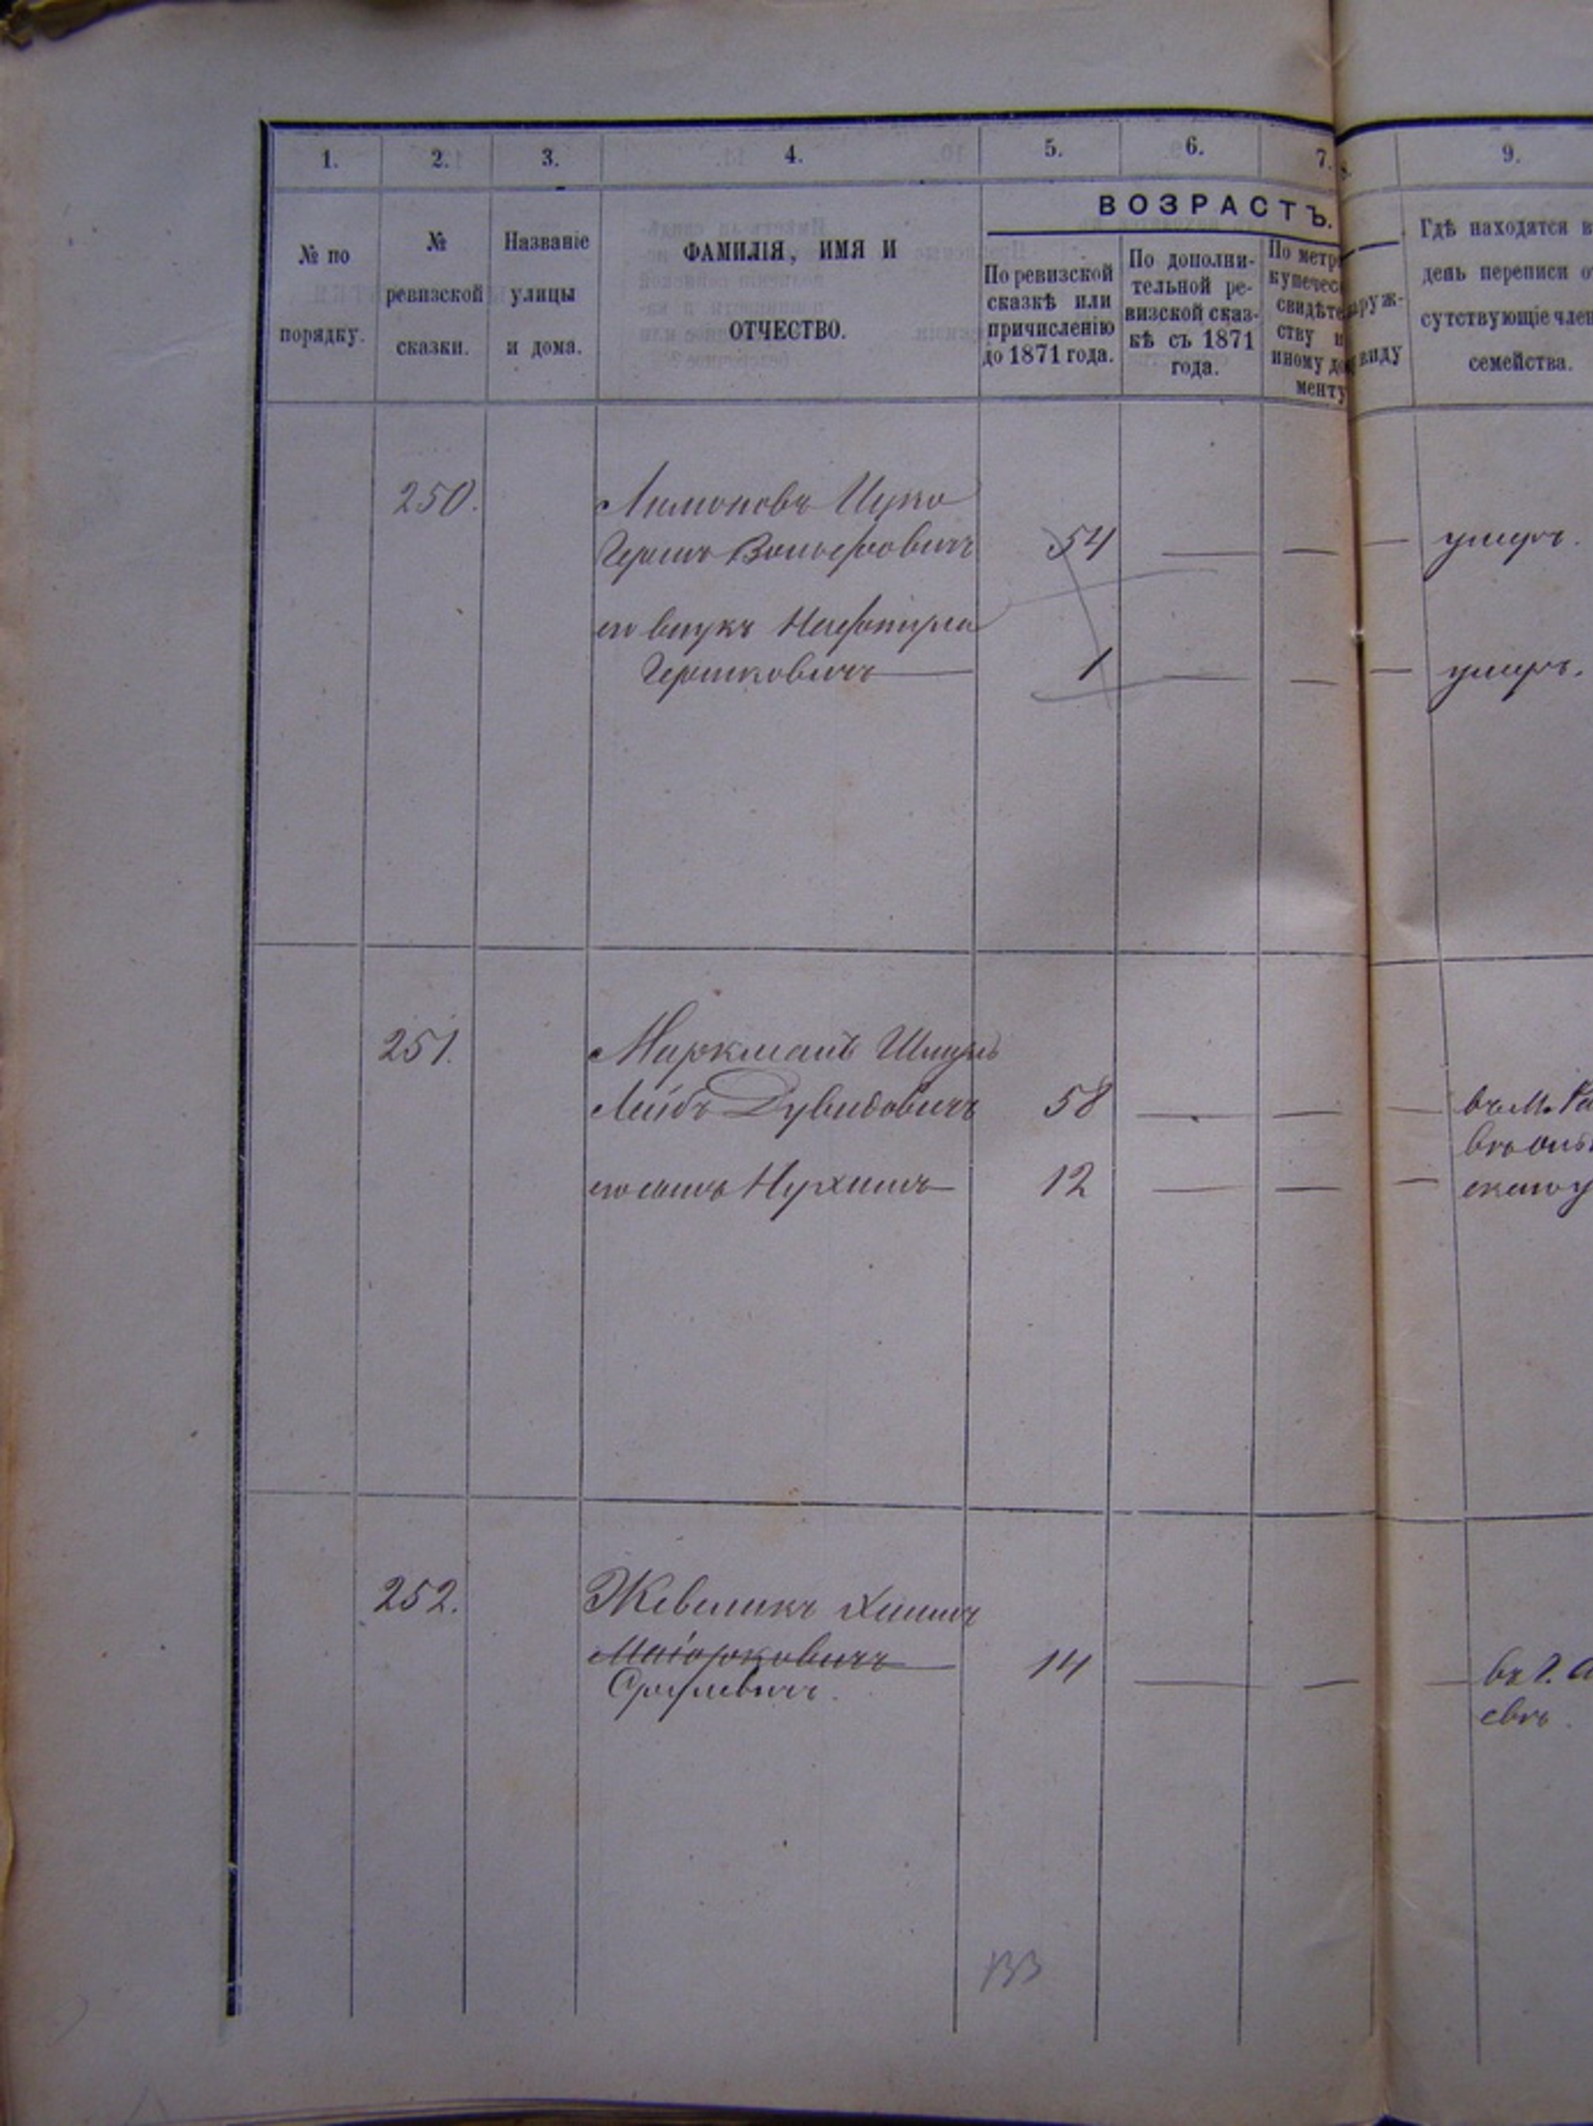 1. 2. 3. 4. 5. 6. 7. 8. 9.
ВОЗРАСТЪ.
№ по порядку.
№ ревизской сказки.
Названіе улицы и дома.
ФАМИЛІЯ, ИМЯ И ОТЧЕСТВО.
По ревизской сказкѣ или причисленію до 1871 года.
По дополнительной ревизской сказкѣ съ 1871 года.
По метр
купечес
свидѣте
ству и
иному до
менту
аруж-
виду
Гдѣ находятся в
день переписи о
сутствующіе член
семейства.
250. Лимоновъ Ицко
Гершъ Вольфовичъ 54 — — — умеръ.
его внукъ Нафтула
Гершковичъ — 1 — — — умеръ.
251. Маркманъ Шмуль
Лейбъ Дувидовичъ 58 — — — въ м. Ра
его сынъ Нухимъ — 12 — — —
252. Жевеликъ Хаимъ
Маіорковичъ — 14 — — — въ г.
Сруліевичъ. евѣ.
133